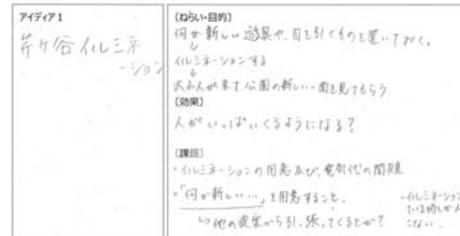 アイディア1
芹ヶ谷イルミネ
ーション
〔ねらい・目的〕
何か新しい遊具や、目を引くものを置いておく。
↓
イルミネーションする
↓
大勢人が来て、公園の新しい一面を見てもらう
〔効果〕
人がいっぱいくるようになる？
〔課題〕
・イルミネーションの用意及び、電気代の問題
・「何か新しい…」を用意すること。
↳他の提案から引っ張ってくるとか？
・イルミネーション
ている時しか人
こない。